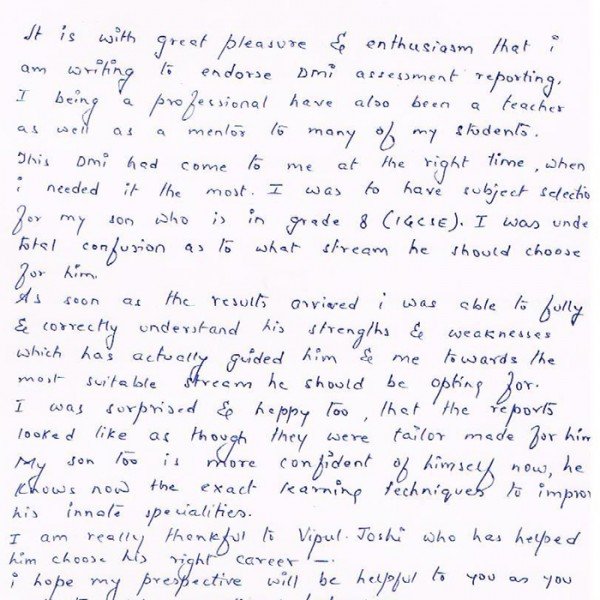 It is with great pleasure & enthusiasm that i
am writing to endorse DMi assessment reporting.
I being a professional have also been a teacher
as well as a mentor to many of my students.
This Dmi had come to me at the right time, when
i needed it the most. I was to have subject selectio
for my son who is in grade 8 (IGCSE). I was unde
total confusion as to what stream he should choose
for him.
As soon as the results arrived i was able to fully
& correctly understand his strengths & weaknesses
which has actually guided him & me towards the
most suitable stream he should be opting for.
I was surprised & happy too, that the reports
looked like as though they were tailor made for him
My son too is more confident of himself now, he
knows now the exact learning techniques to impro
his innate specialities.
I am really thankful to Vipul. Joshi who has helped
him choose his right career –.
i hope my prespective will be helpful to you as you